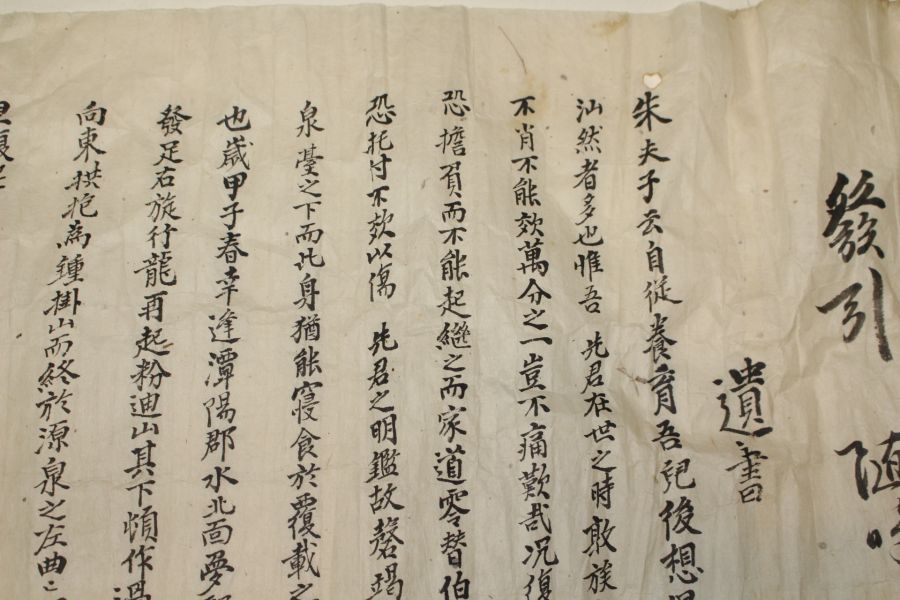 發引 随
遺書
朱夫子云自從養育吾兒後想
汕然者多也惟吾 先君在世之時敢族
不肖不能效萬分之一豈不痛歎哉况復
恐擔負而不能起繼之而家道零替伯
恐托付不效以傷 先君之明鑑故罄竭
泉臺之下而此身猶能寢食於覆載之
也歲甲子春幸逢潭陽郡水北面夢
發足右旋行龍再起粉迪山其下頓作
向東拱抱為鍾掛山而終於源泉之左曲